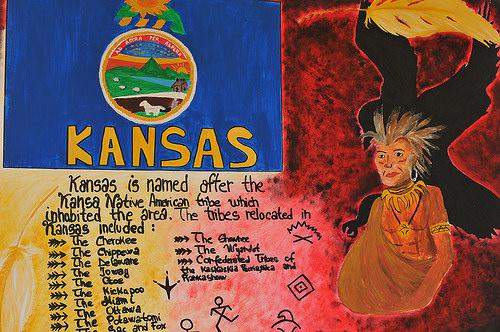 AD ASTRA PER ASPERA
KANSAS
Kansas is named after the
Kansa Native American tribe which
inhabited the area. The tribes relocated in
Kansas included :
The Cherokee
The Chippewa
The Delaware
The Ioway
The Otoe
The Kickapoo
The Miami
The Ottawa
The Potawatomi
The Sac and Fox
The Shawnee
The Wyandot
Confederated Tribes of
the Kaskaskia Peoria and